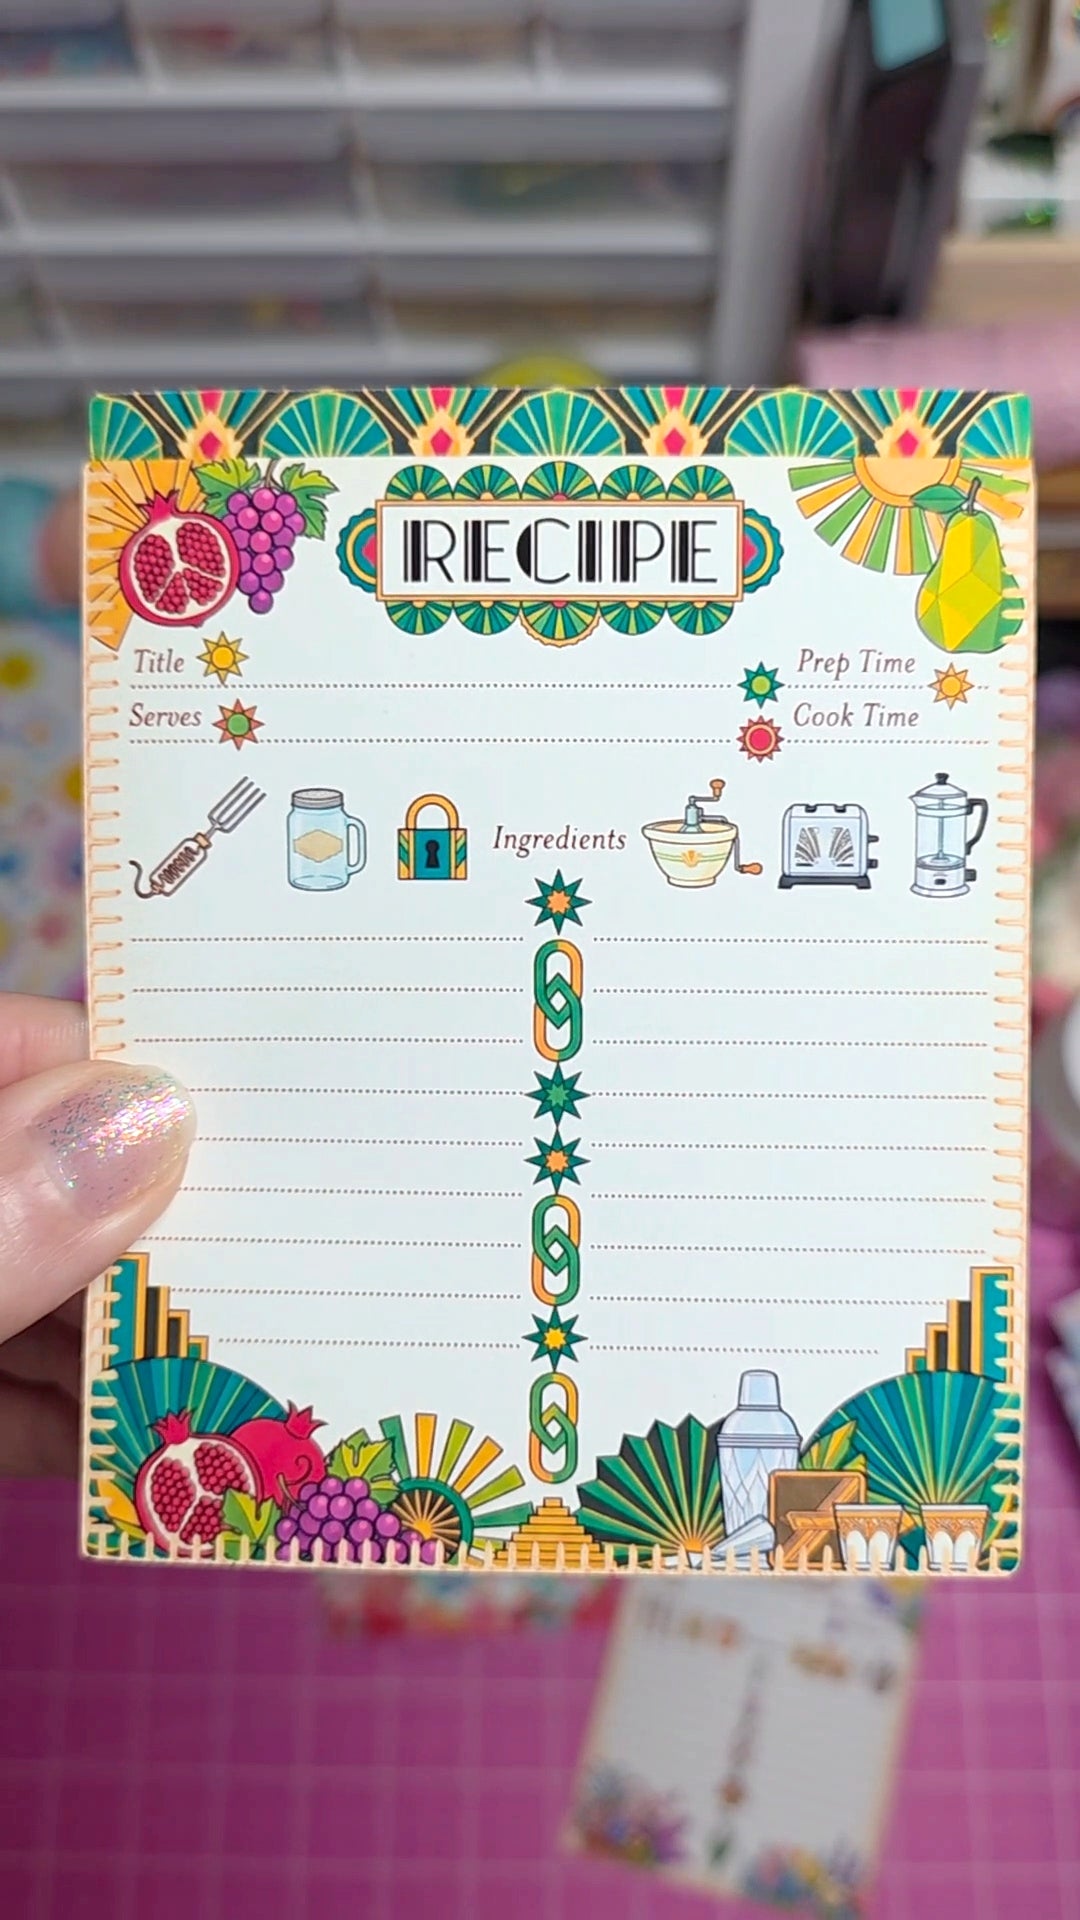 RECIPE
Title Prep Time
Serves Cook Time
Ingredients